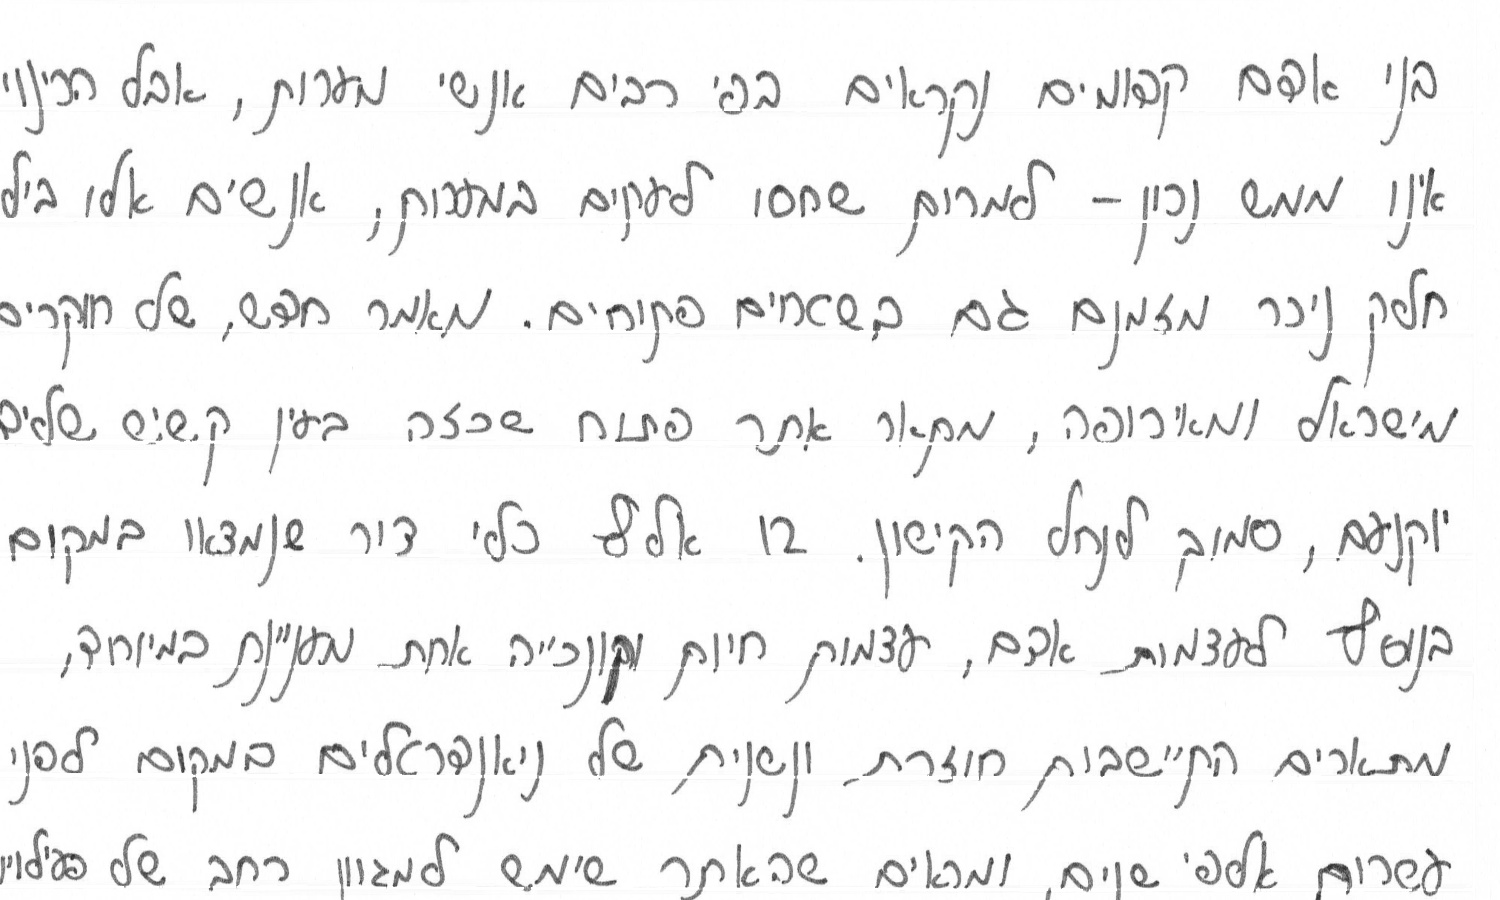 בני אדם קדומים נקראים בפי רבים אנשי מערות, אבל הכינוי
אינו ממש נכון – למרות שחסו לעתים במערות, אנשים אלו בילו
חלק ניכר מזמנם גם בשטחים פתוחים. מאמר חדש, של חוקרים
מישראל ומאירופה, מתאר אתר פתוח שכזה בעין קשיש שליד
יוקנעם, סמוך לנחל הקישון. 12 אלף כלי צור שנמצאו במקום
בנוסף לעצמות אדם, עצמות חיות וקונכייה אחת מעניינת במיוחד,
מתארים התיישבות חוזרת ונשנית של ניאנדרטלים במקום לפני
עשרות אלפי שנים, ומראים שהאתר שימש למגוון רחב של פעילויות